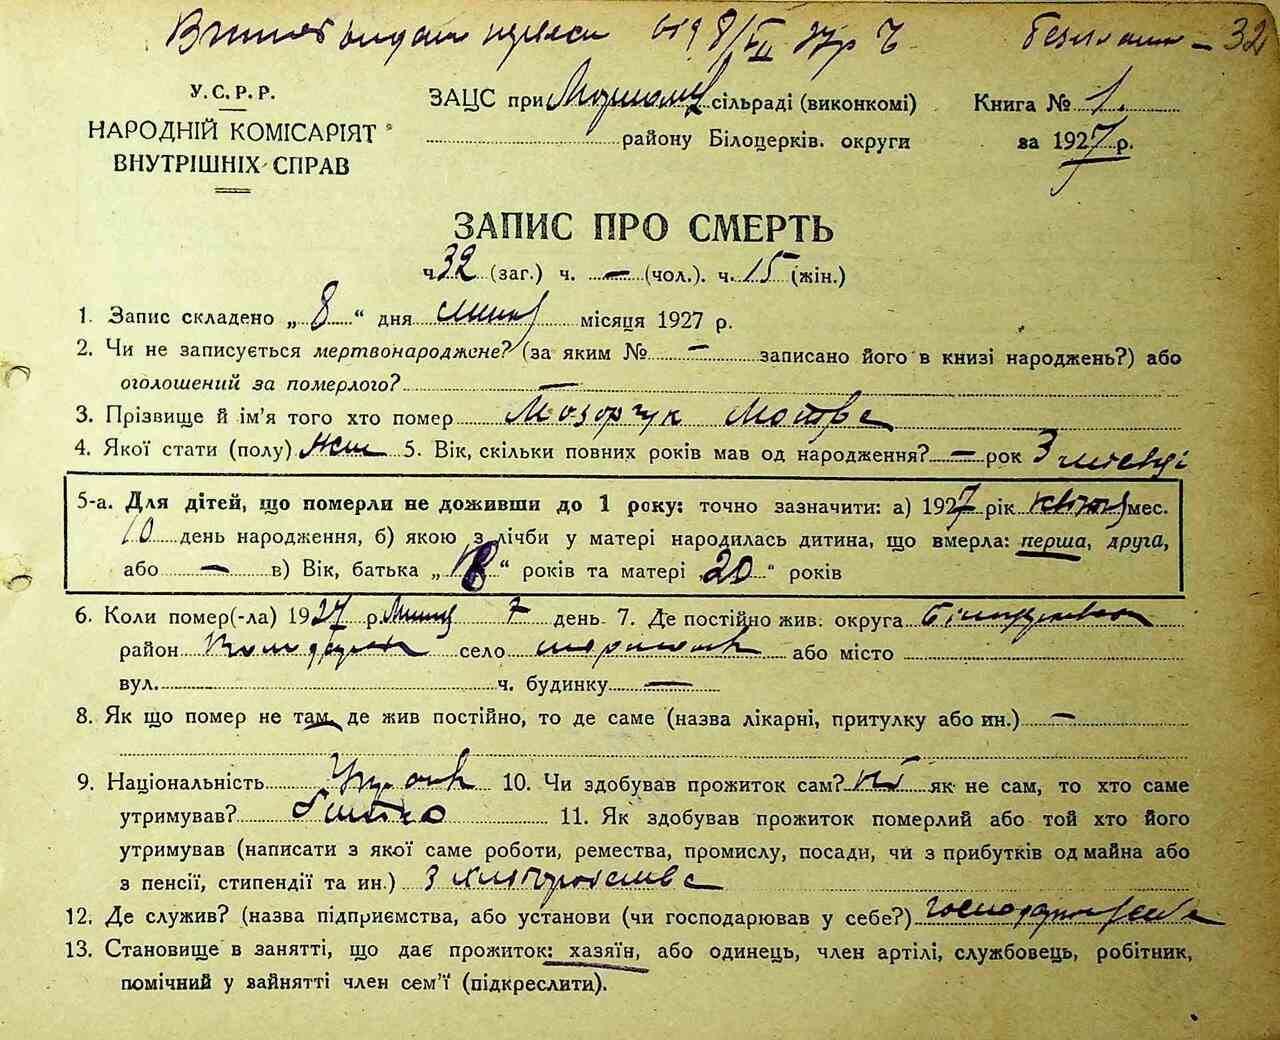 32
У.С.Р.Р.
НАРОДНІЙ КОМІСАРІЯТ
ВНУТРІШНІХ СПРАВ
ЗАЦС при сільраді (виконкомі)
району Білоцерків. округи
Книга № 1.
за 1927 р.
ЗАПИС ПРО СМЕРТЬ
ч. 32 (заг.) ч. — (чол.). ч. 15 (жін.)
1. Запис складено „ 8 “ дня липня місяця 1927 р.
2. Чи не записується мертвонароджене? (за яким № — записано його в книзі народжень?) або
оголошений за померлого? —
3. Прізвище й ім'я того хто помер
4. Якої стати (полу) жін 5. Вік, скільки повних років мав од народження? — рок 3 місяці
5-а. Для дітей, що померли не доживши до 1 року: точно зазначити: а) 1927 рік квітня мес.
10 день народження, б) якою з лічби у матері народилась дитина, що вмерла: перша, друга,
або — в) Вік, батька „ “ років та матері „ 20 “ років
6. Коли помер(-ла) 1927 р. Липня 7 день 7. Де постійно жив. округа Білоцерківська
район село або місто
вул. ч. будинку —
8. Як що помер не там, де жив постійно, то де саме (назва лікарні, притулку або ин.) —
9. Національність 10. Чи здобував прожиток сам? ні як не сам, то хто саме
утримував? батько 11. Як здобував прожиток померлий або той хто його
утримував (написати з якої саме роботи, ремества, промислу, посади, чи з прибутків од майна або
з пенсії, стипендії та ин.) з хліборобства
12. Де служив? (назва підприємства, або установи (чи господарював у себе?)
13. Становище в занятті, що дає прожиток: хазяїн, або одинець, член артілі, службовець, робітник,
помічний у зайнятті член сем'ї (підкреслити).